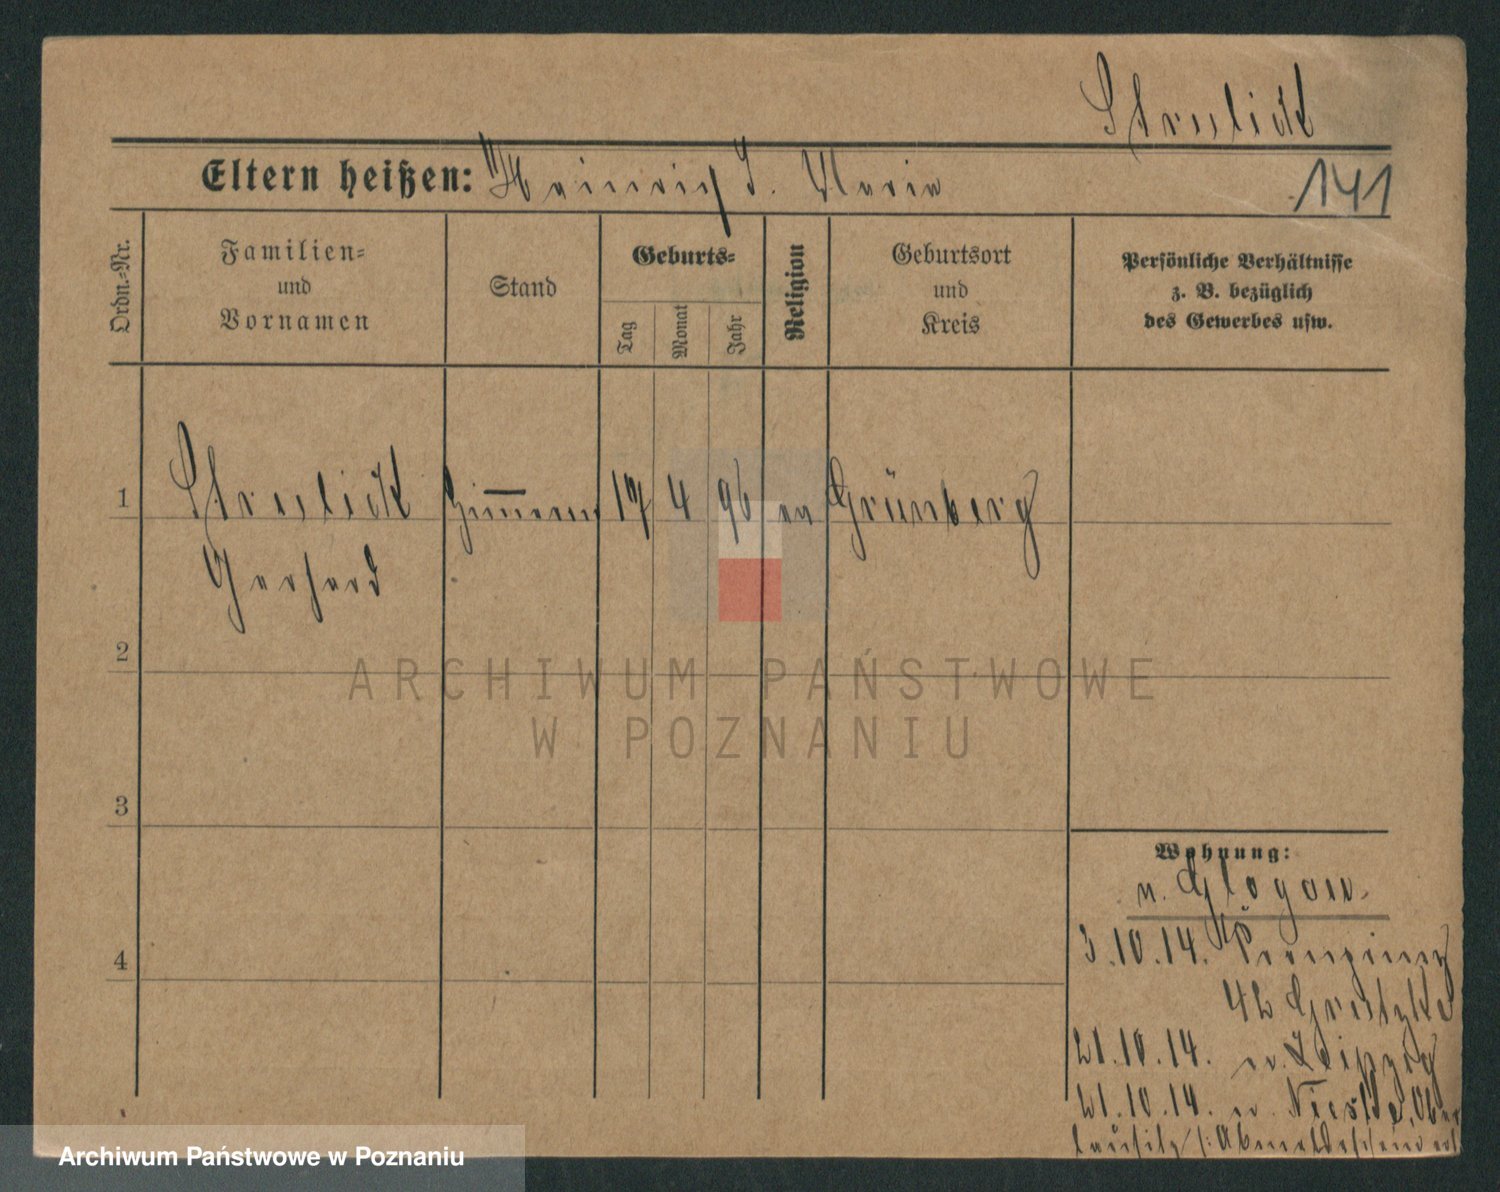 Strulick
Eltern heißen: Heinrich u. Maria
141
Ordn.-Nr.
Familien-
und
Vornamen
Stand
Geburts-
Tag
Monat
Jahr
Religion
Geburtsort
und
Kreis
Persönliche Verhältnisse
z. B. bezüglich
des Gewerbes usw.
1 Strulick Zimmerm 17 4 96 ev Grünberg
Gerhard
2
3
4
Wohnung:
n. Glogau.
3.10.14.
42
21.10.14. Leipzig
21.10.14. Niesky, Ober
lausitz
ARCHIWUM PAŃSTWOWE
W POZNANIU
Archiwum Państwowe w Poznaniu